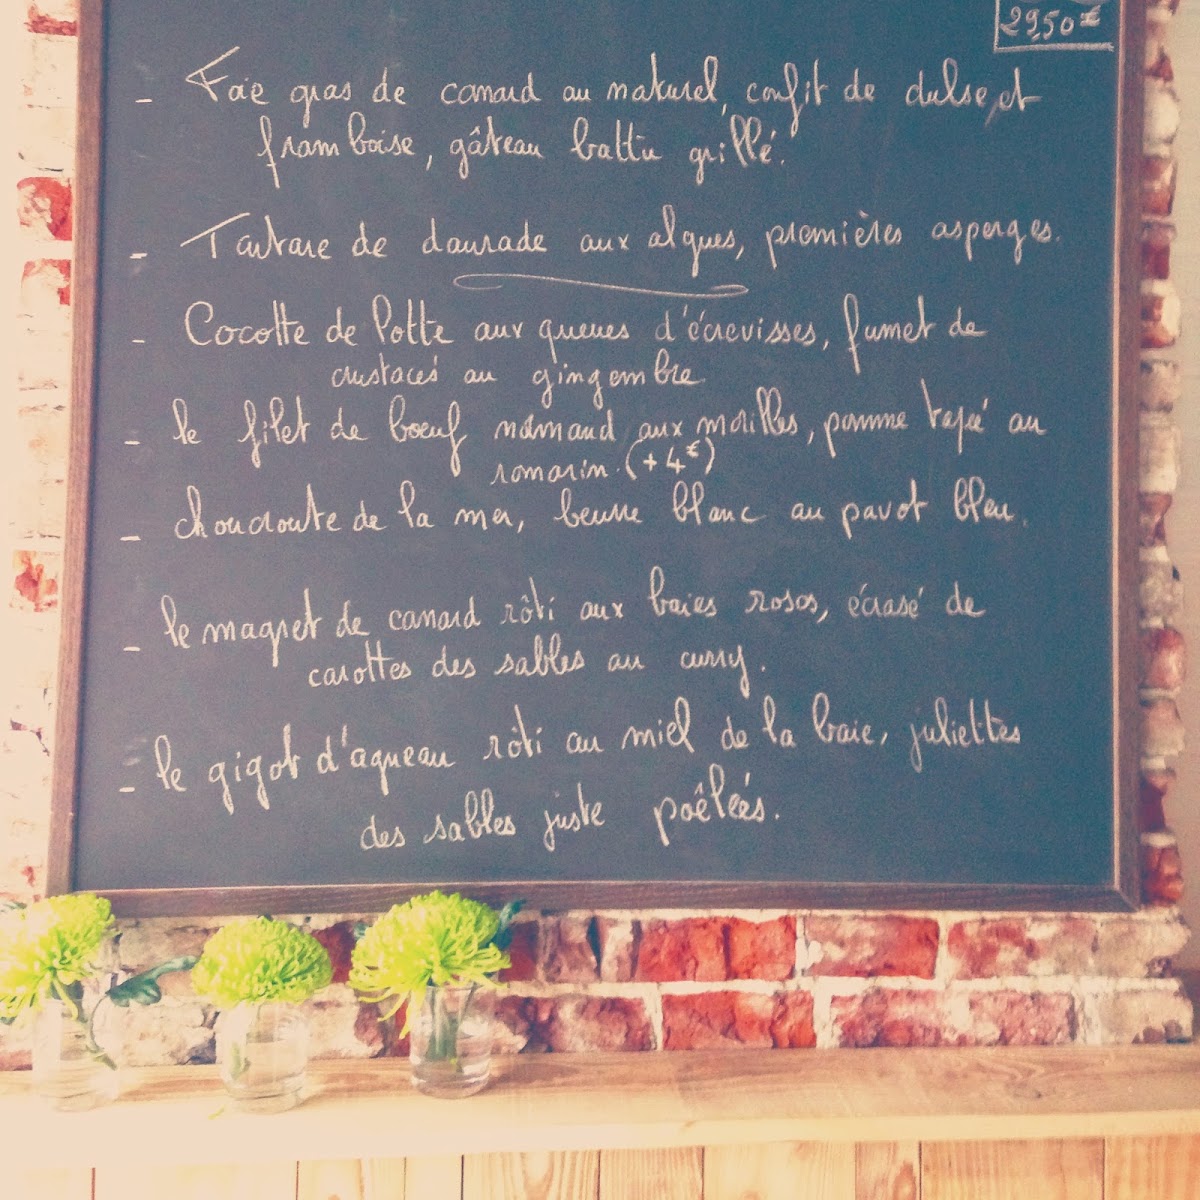 29,50 €
- Foie gras de canard au naturel, confit de dulse et
framboise, gâteau battu grillé.
- Tartare de daurade aux algues, premières asperges.
- Cocotte de lotte aux queues d'écrevisses, fumet de
crustacés au gingembre
- le filet de boeuf normand aux morilles, pomme tapée au
romarin. (+4€)
- choucroute de la mer, beurre blanc au pavot bleu.
- le magret de canard rôti aux baies roses, écrasé de
carottes des sables au curry.
- le gigot d'agneau rôti au miel de la baie, juliettes
des sables juste poêlées.